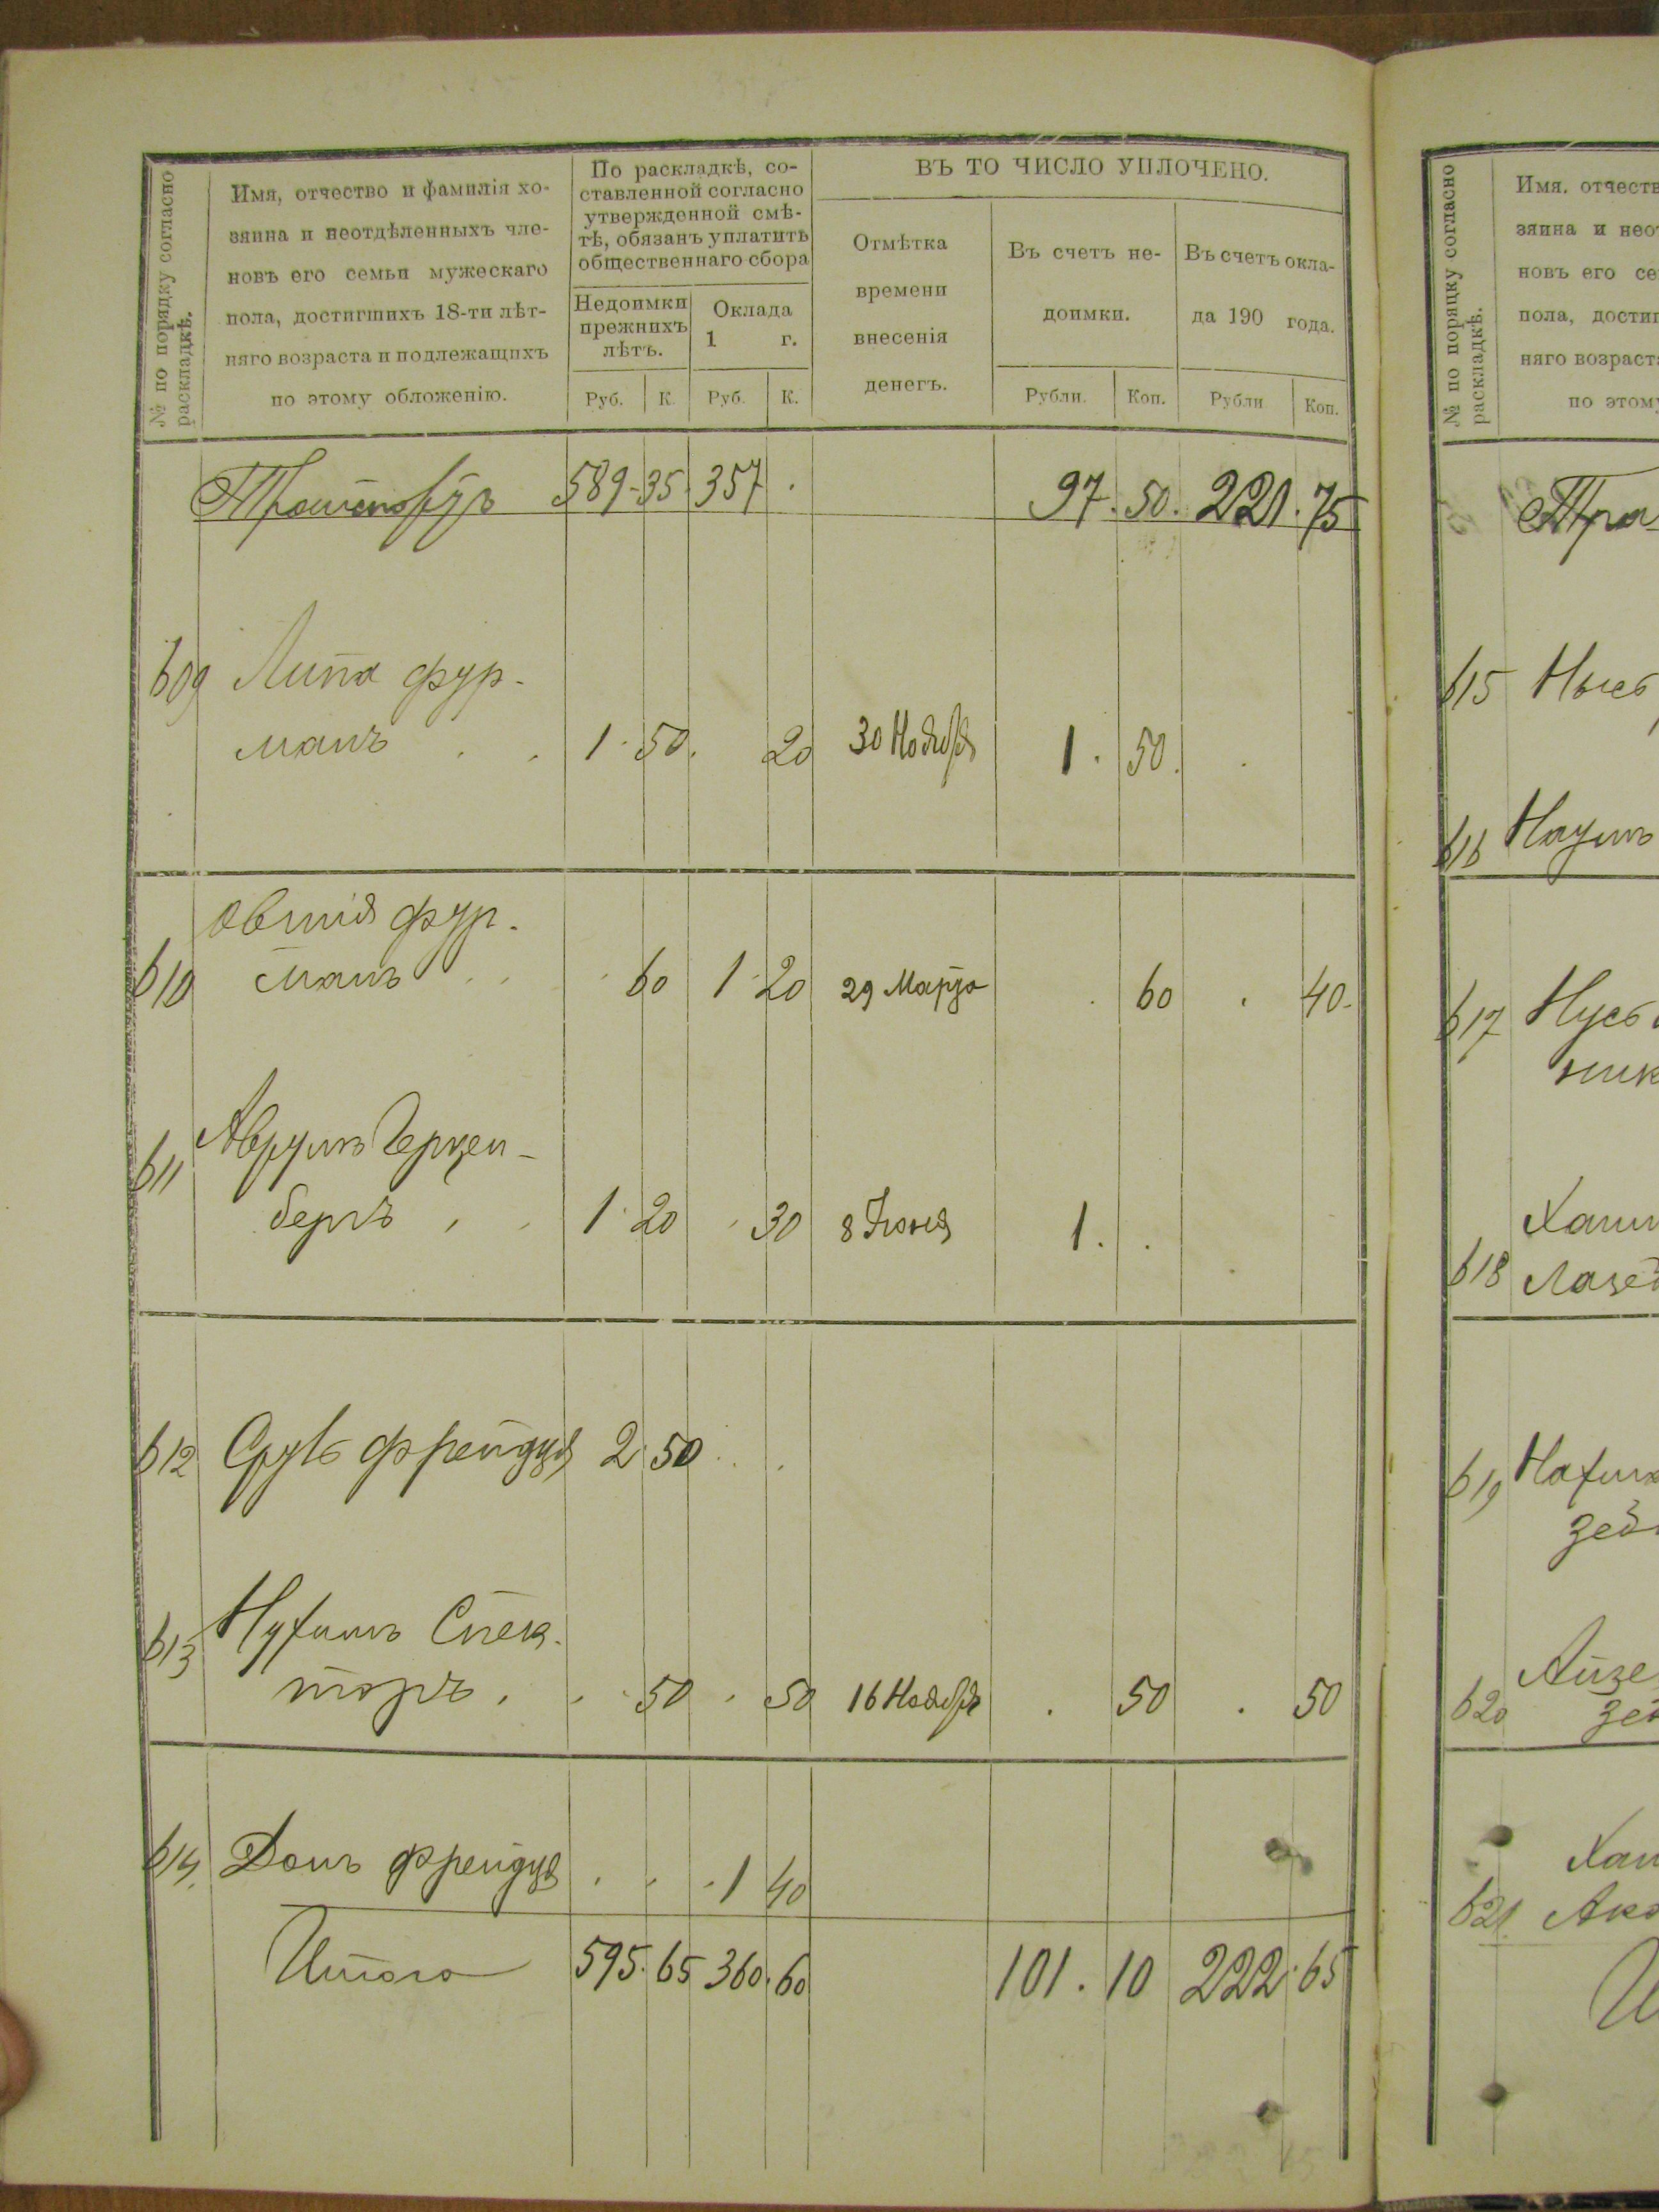 № по порядку согласно
раскладкѣ.
Имя, отчество и фамилія хо-
зяина и неотдѣленныхъ чле-
новъ его семьи мужескаго
пола, достигшихъ 18-ти лѣт-
няго возраста и подлежащихъ
по этому обложенію.
По раскладкѣ, со-
ставленной согласно
утвержденной смѣ-
тѣ, обязанъ уплатить
общественнаго сбора
Недоимки
прежнихъ
лѣтъ.
Оклада
1 г.
Руб. К. Руб. К.
ВЪ ТО ЧИСЛО УПЛОЧЕНО.
Отмѣтка
времени
внесенія
денегъ.
Въ счетъ не-
доимки.
Въ счетъ окла-
да 190 года.
Рубли. Коп. Рубли Коп.
Транспортъ 589 35 357 97 50 221 75
609 Липа Фур-
манъ 1 50 20 30 Ноября 1 50
Овшія Фур-
610 манъ 60 1 20 29 Марта 60 40
611 Аврумъ Герцен-
бергъ 1 20 30 8 Іюня 1
612 Сруль 2 50
613 Нухимъ Спек-
торъ 50 50 16 Ноября 50 50
614 1 40
Итого 595 65 360 60 101 10 222 65
№ по порядку согласно
раскладкѣ.
Имя, отчеств
зяина и нео
новъ его се
пола, дости
няго возраст
по этом
Тра
615
616 Наумъ
617
618
619
620 Айзе
621